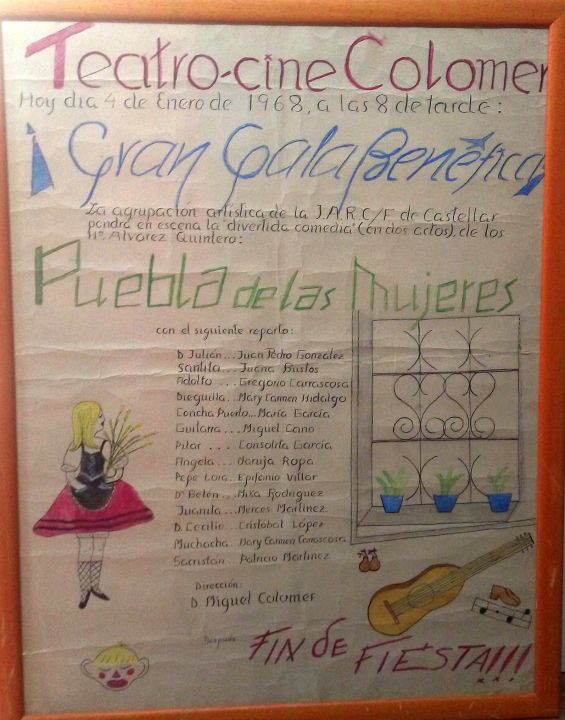 Teatro-cine Colomer
Hoy día 4 de Enero de 1968, a las 8 de tarde:
¡Gran Gala Benéfica!
La agrupación artística de la J.A.R.C/F de Castellar
pondrá en escena la 'divertida comedia' (en dos actos), de los
Hº. Alvarez Quintero:
Puebla de las Mujeres
con el siguiente reparto:
D. Julián... Juan Pedro González
Santita... Juana Bustos
Adolfo ... Gregorio Carrascosa
Dieguilla.. Mary Carmen Hidalgo
Concha Puerto... María García
Guitarra... Miguel Cano
Pilar ... Consolita García
Angela... Maruja Ropa
Pepe Lora. Epifanio Villar
Dª Belén... Misa Rodríguez
Juanita... Merces Martínez
D. Cecilio.. Cristóbal López
Muchacha.. Mary Carmen Carrascosa
Sacristán.. Patricio Martínez
Dirección:
D. Miguel Colomer
Después
FIN de FIESTA!!!